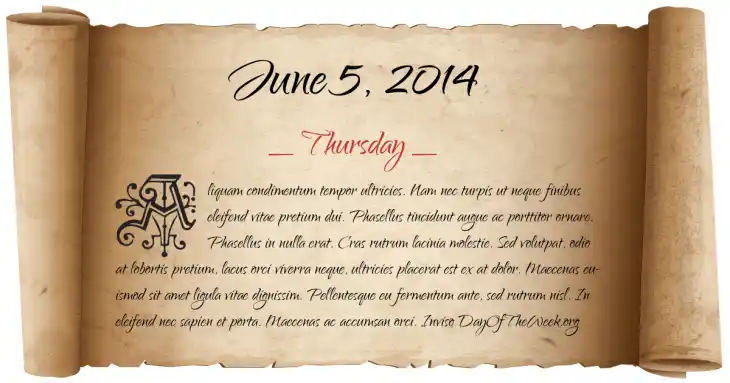 June 5, 2014
_ Thursday _
Aliquam condimentum tempor ultricies. Nam nec turpis ut neque finibus
eleifend vitae pretium dui. Phasellus tincidunt augue ac porttitor ornare.
Phasellus in nulla erat. Cras rutrum lacinia molestie. Sed volutpat, odio
at lobortis pretium, lacus orci viverra neque, ultricies placerat est ex at dolor. Maecenas eu-
ismod sit amet ligula vitae dignissim. Pellentesque eu fermentum ante, sed rutrum nisl. In
eleifend nec sapien et porta. Maecenas ac accumsan orci. Inviso DayOfTheWeek.org